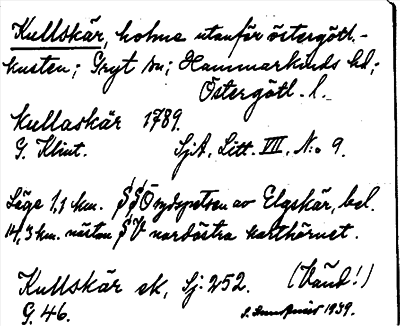 Kullskär, holme utanför östergötl.-
kusten; Gryt sn; Hammarkinds hd;
Östergötl. l.
Kullaskär 1789.
G. Klint. SjA, Litt. VIII, No 9.
Läge 1,1 km. SSO sydspetsen av Elgskär, bel.
14,3 km. nästan SV nordöstra karthörnet.
Kullskär sk, Sj. 252. (Vänd!)
G. 46. 1939.